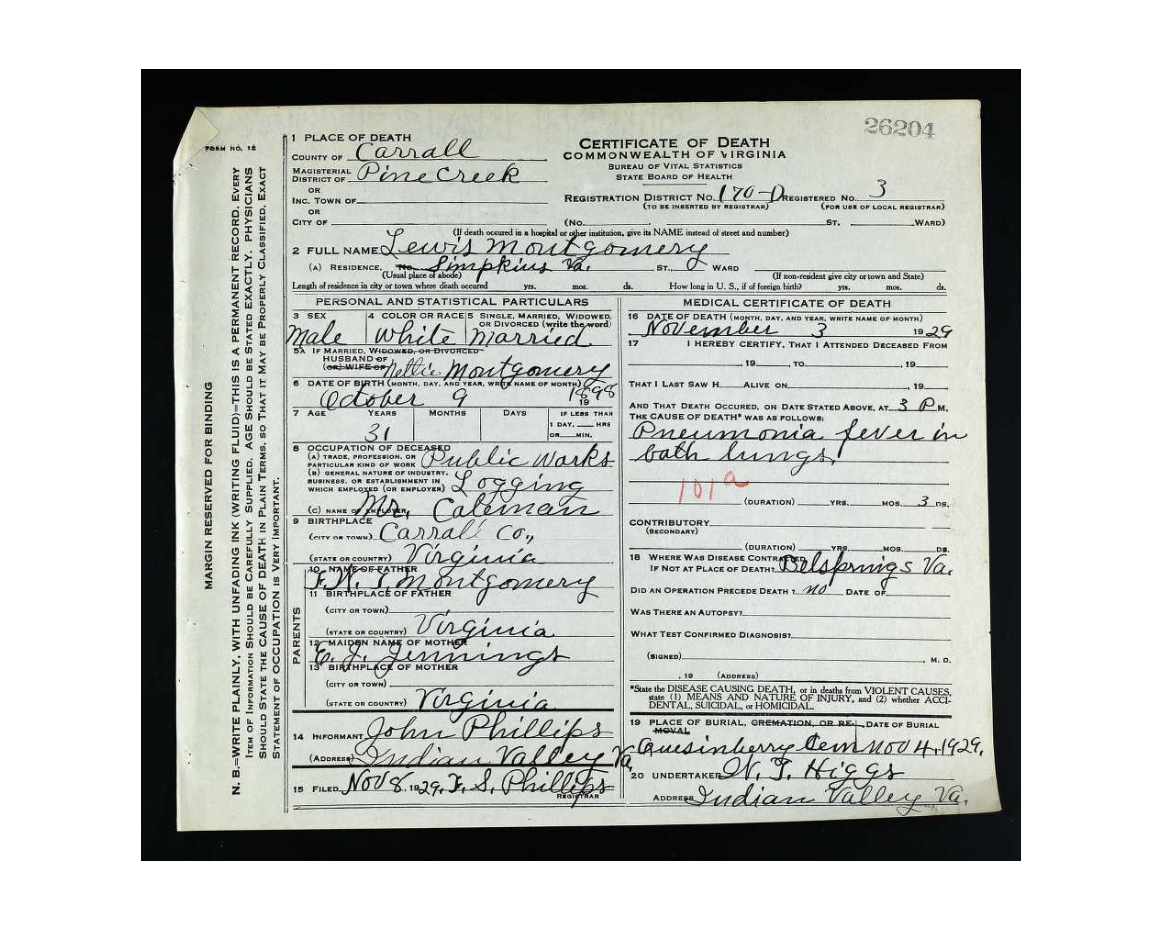 26204
FORM NO. 12
MARGIN RESERVED FOR BINDING
N. B.—WRITE PLAINLY, WITH UNFADING INK (WRITING FLUID)—THIS IS A PERMANENT RECORD. EVERY
ITEM OF INFORMATION SHOULD BE CAREFULLY SUPPLIED. AGE SHOULD BE STATED EXACTLY. PHYSICIANS
SHOULD STATE THE CAUSE OF DEATH IN PLAIN TERMS, SO THAT IT MAY BE PROPERLY CLASSIFIED. EXACT
STATEMENT OF OCCUPATION IS VERY IMPORTANT.
1 PLACE OF DEATH
COUNTY OF Carrall
MAGISTERIAL
DISTRICT OF Pine Creek
OR
INC. TOWN OF
OR
CITY OF
CERTIFICATE OF DEATH
COMMONWEALTH OF VIRGINIA
BUREAU OF VITAL STATISTICS
STATE BOARD OF HEALTH
REGISTRATION DISTRICT NO. 170-D REGISTERED NO. 3
(TO BE INSERTED BY REGISTRAR) (FOR USE OF LOCAL REGISTRAR)
(No. ST. WARD)
(If death occured in a hospital or other institution, give its NAME instead of street and number)
2 FULL NAME Lewis Montgomery
(A) RESIDENCE. No. Simpkins Va. ST., WARD
(Usual place of abode) (If non-resident give city or town and State)
Length of residence in city or town where death occured yrs. mos. ds. How long in U. S., if of foreign birth? yrs. mos. ds.
PERSONAL AND STATISTICAL PARTICULARS
3 SEX 4 COLOR OR RACE 5 SINGLE, MARRIED, WIDOWED,
OR DIVORCED (write the word)
Male White Married
5A IF MARRIED, WIDOWED, OR DIVORCED
HUSBAND OF
(OR) WIFE OF Nellie Montgomery
6 DATE OF BIRTH (MONTH, DAY, AND YEAR, WRITE NAME OF MONTH)
October 9 1898
19
7 AGE YEARS MONTHS DAYS IF LESS THAN
1 DAY, HRS
OR MIN.
31
8 OCCUPATION OF DECEASED
(A) TRADE, PROFESSION, OR
PARTICULAR KIND OF WORK Public Works
(B) GENERAL NATURE OF INDUSTRY,
BUSINESS, OR ESTABLISHMENT IN
WHICH EMPLOYED (OR EMPLOYER) Logging
(C) NAME OF EMPLOYER Mr. Caleman
9 BIRTHPLACE
(CITY OR TOWN) Carrall Co.,
(STATE OR COUNTRY) Virginia
PARENTS
10 NAME OF FATHER
Montgomery
11 BIRTHPLACE OF FATHER
(CITY OR TOWN)
(STATE OR COUNTRY) Virginia
12 MAIDEN NAME OF MOTHER
E. J. Jennings
13 BIRTHPLACE OF MOTHER
(CITY OR TOWN)
(STATE OR COUNTRY) Virginia
14 INFORMANT John Phillips
(ADDRESS) Indian Valley Va.
15 FILED Nov 8, 1929, F. S. Phillips
REGISTRAR
MEDICAL CERTIFICATE OF DEATH
16 DATE OF DEATH (MONTH, DAY, AND YEAR, WRITE NAME OF MONTH)
November 3 1929
17 I HEREBY CERTIFY, THAT I ATTENDED DECEASED FROM
, 19 , TO , 19
THAT I LAST SAW H ALIVE ON , 19
AND THAT DEATH OCCURED, ON DATE STATED ABOVE, AT 3 P M.
THE CAUSE OF DEATH* WAS AS FOLLOWS:
Pneumonia fever in
both lungs.
101a
(DURATION) YRS. MOS. 3 DS.
CONTRIBUTORY
(SECONDARY)
(DURATION) YRS. MOS. DS.
18 WHERE WAS DISEASE CONTRACTED
IF NOT AT PLACE OF DEATH? Belsprings Va.
DID AN OPERATION PRECEDE DEATH? no DATE OF
WAS THERE AN AUTOPSY?
WHAT TEST CONFIRMED DIAGNOSIS?
(SIGNED) , M. D.
, 19 (ADDRESS)
*State the DISEASE CAUSING DEATH, or in deaths from VIOLENT CAUSES,
state (1) MEANS AND NATURE OF INJURY, and (2) whether ACCI-
DENTAL, SUICIDAL, or HOMICIDAL.
19 PLACE OF BURIAL, CREMATION, OR RE- DATE OF BURIAL
MOVAL
Quesinberry Cem Nov 4, 1929.
20 UNDERTAKER W. T. Higgs
ADDRESS Indian Valley Va.